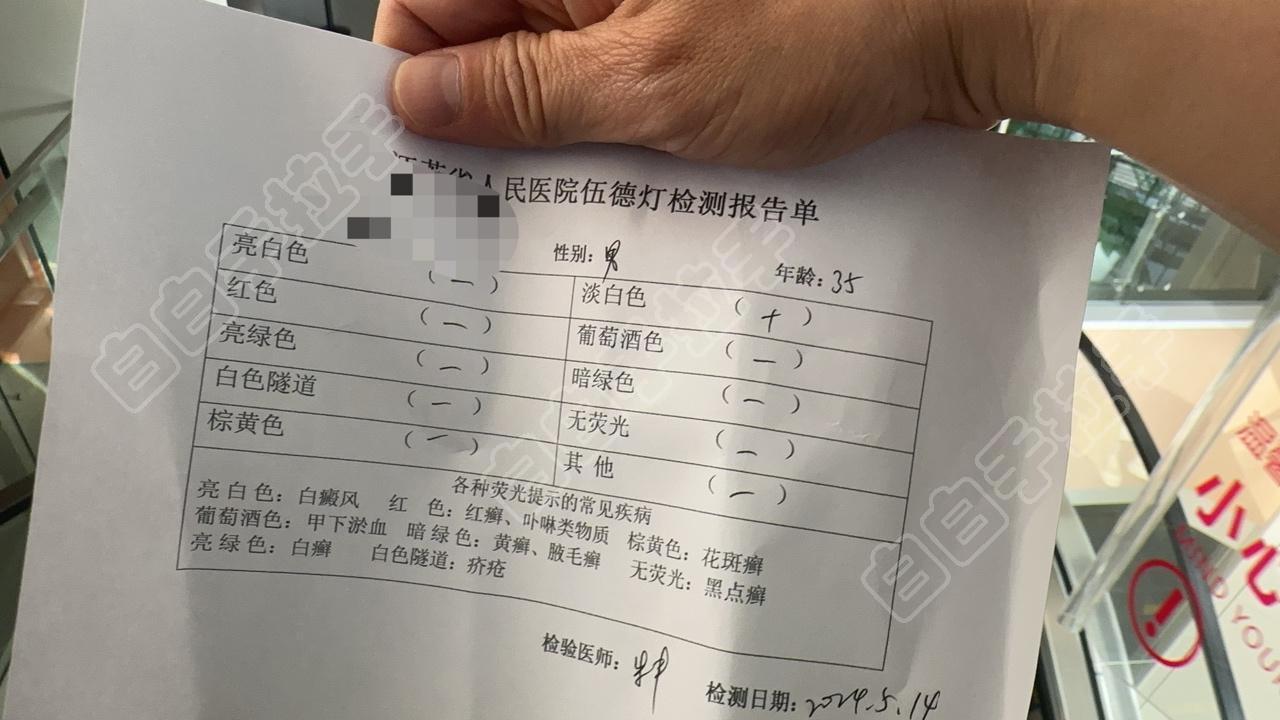 江苏省人民医院伍德灯检测报告单
性别：男 年龄：35
亮白色 （一） 淡白色 （+）
红色 （一） 葡萄酒色 （一）
亮绿色 （一） 暗绿色 （一）
白色隧道 （一） 无荧光 （一）
棕黄色 （一） 其他 （一）
各种荧光提示的常见疾病
亮白色：白癜风 红 色：红癣、卟啉类物质 棕黄色：花斑癣
葡萄酒色：甲下淤血 暗绿色：黄癣、腋毛癣 无荧光：黑点癣
亮绿色：白癣 白色隧道：疥疮
检验医师：
检测日期：2024.5.14
白白手拉手
白白手拉手
白白手拉手
温馨
小心
MIND YOUR